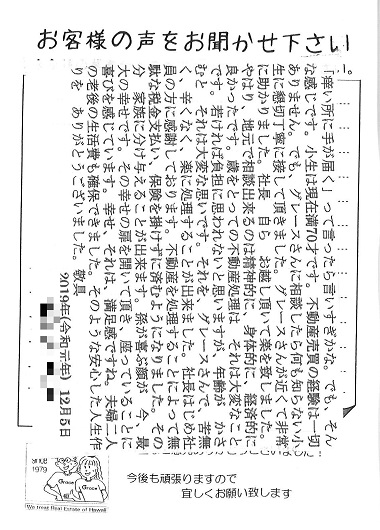 お客様の声をお聞かせ下さい
「痒い所に手が届く」って言ったら言いすぎかな。でも、そん
な感じです。小生は現在満70才です。不動産売買の経験は一切
ありません。でも、グレースさんに相談したら何も知らない小
生に懇切丁寧に接して頂きました。グレースさんが近くて非常
に助かりました。社長、自ら、お越し頂いて楽を致しました。
やはり、地元で相談出来るのは精神的に、身体的に、経済的に
良かったです。歳をとっての不動産処理は、それは大変なこと
です。若ければ負担に思われないと思いますが、年齢が、かさ
むと、それは大変な思いです。それを、グレースさんで、苦無
く、辛くなく、楽に処理することが出来ました。社長はじめ社
員の方に感謝しております。不動産を処理することによって無
駄な税金支払い、保険を掛けずに済むようになりました。その
分、家族に分け与えることが出来ます。孫が喜ぶ顔が、今、最
大の幸せです。その幸せの扉を開いて頂き、座っていることに
喜びを感じています。幸せ、それは、満足感ですね。夫婦二人
の老後の生活費も確保できました。そのような安心した人生作
りを、ありがとうございました。敬具
2019年(令和元年) 12月5日
since
1979
Grace
Grace
We treat Real Estate of Hawaii
今後も頑張りますので
宜しくお願い致します